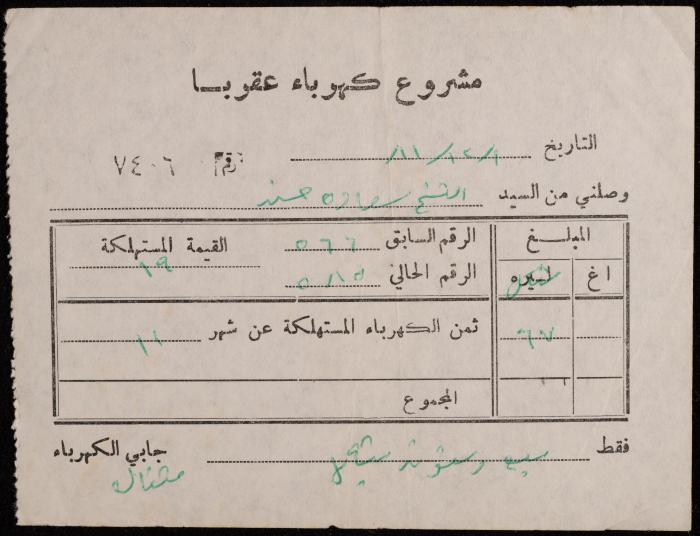 مشروع كهرباء عقوبا
التاريخ
رقم ٧٤٠٦
وصلني من السيد الشيخ
المبلغ
اغ ليره شيكل
٦٧
الرقم السابق ٥٦٦
الرقم الحالي ٥٨٥
القيمة المستهلكة
١٩
ثمن الكهرباء المستهلكة عن شهر ١١
المجموع
فقط سبعة وستون شيكل
جابي الكهرباء